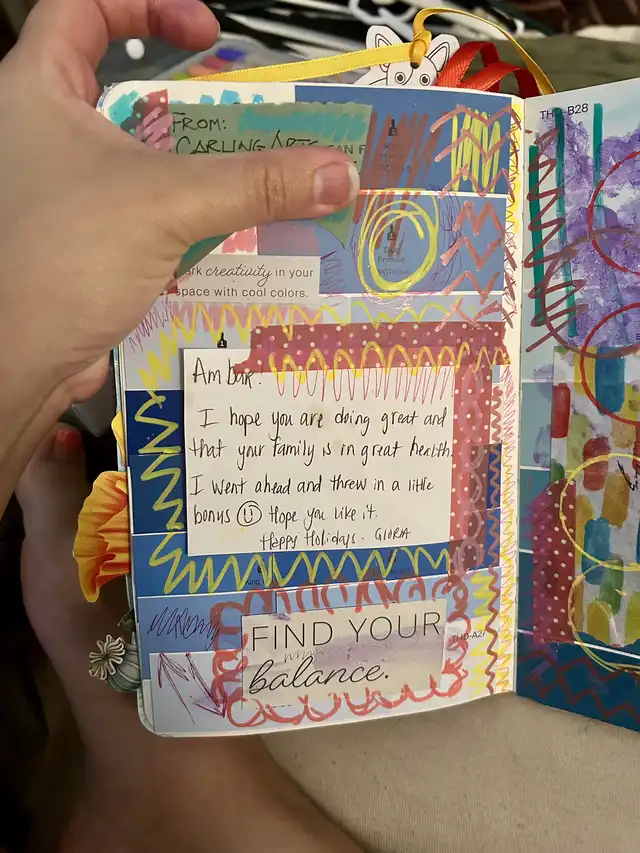 FROM:
CARLING ARTS
THD-B28
creativity in your
space with cool colors.
Ambar.
I hope you are doing great and
that your family is in great health.
I went ahead and threw in a little
bonus ☺ Hope you like it.
Happy Holidays - GLORIA
FIND YOUR
balance.
THD-A27